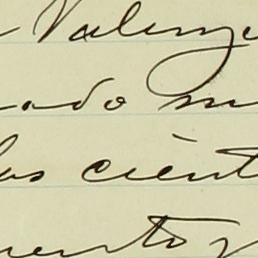 Valenz
ado m
las cient
mento y